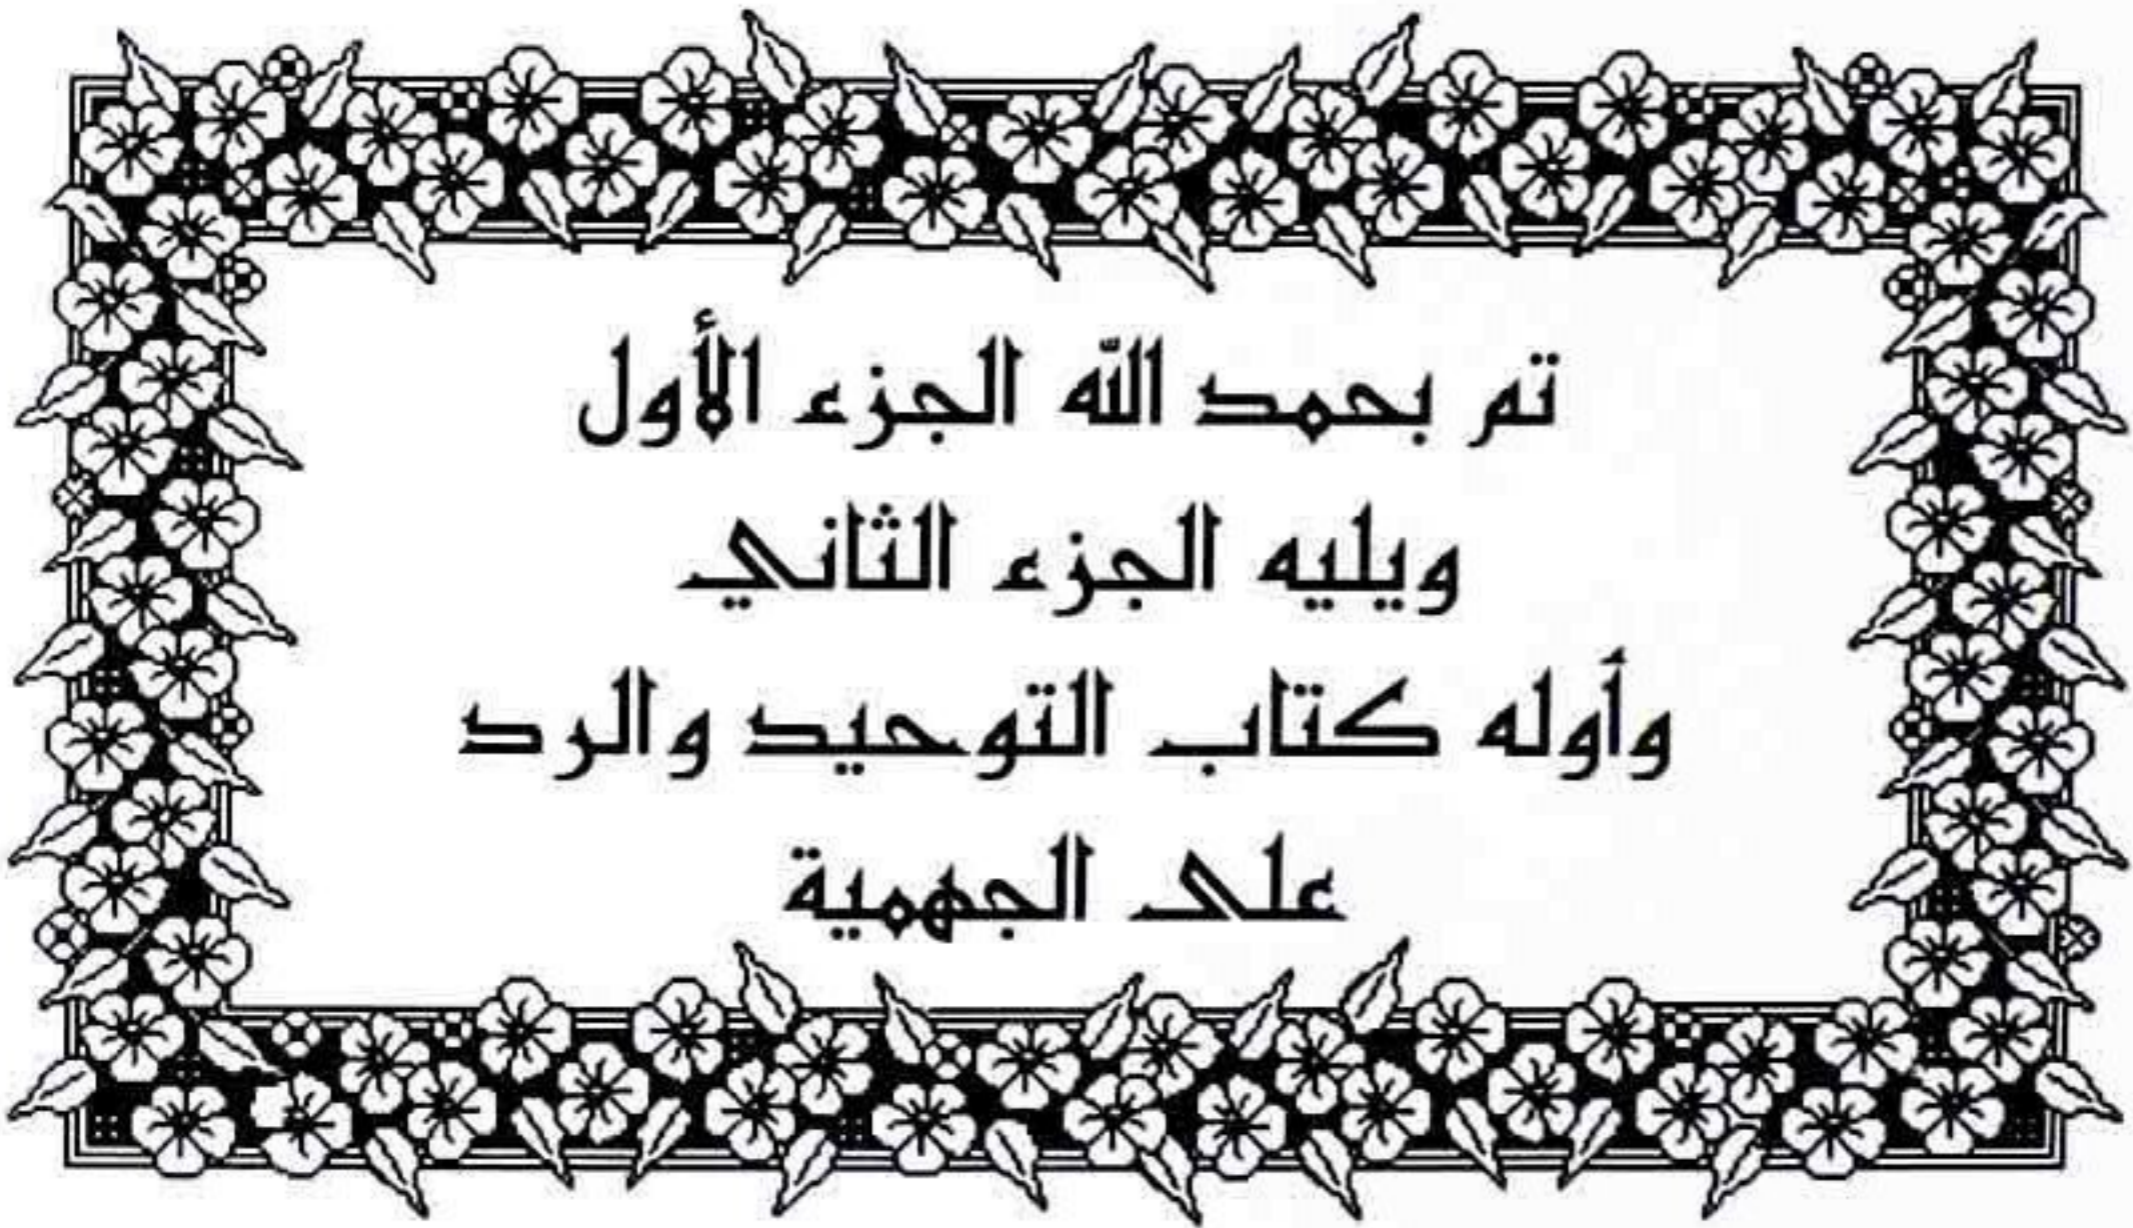 تم بحمد الله الجزء الأول
ويليه الجزء الثاني
وأوله كتاب التوحيد والرد
على الجهمية